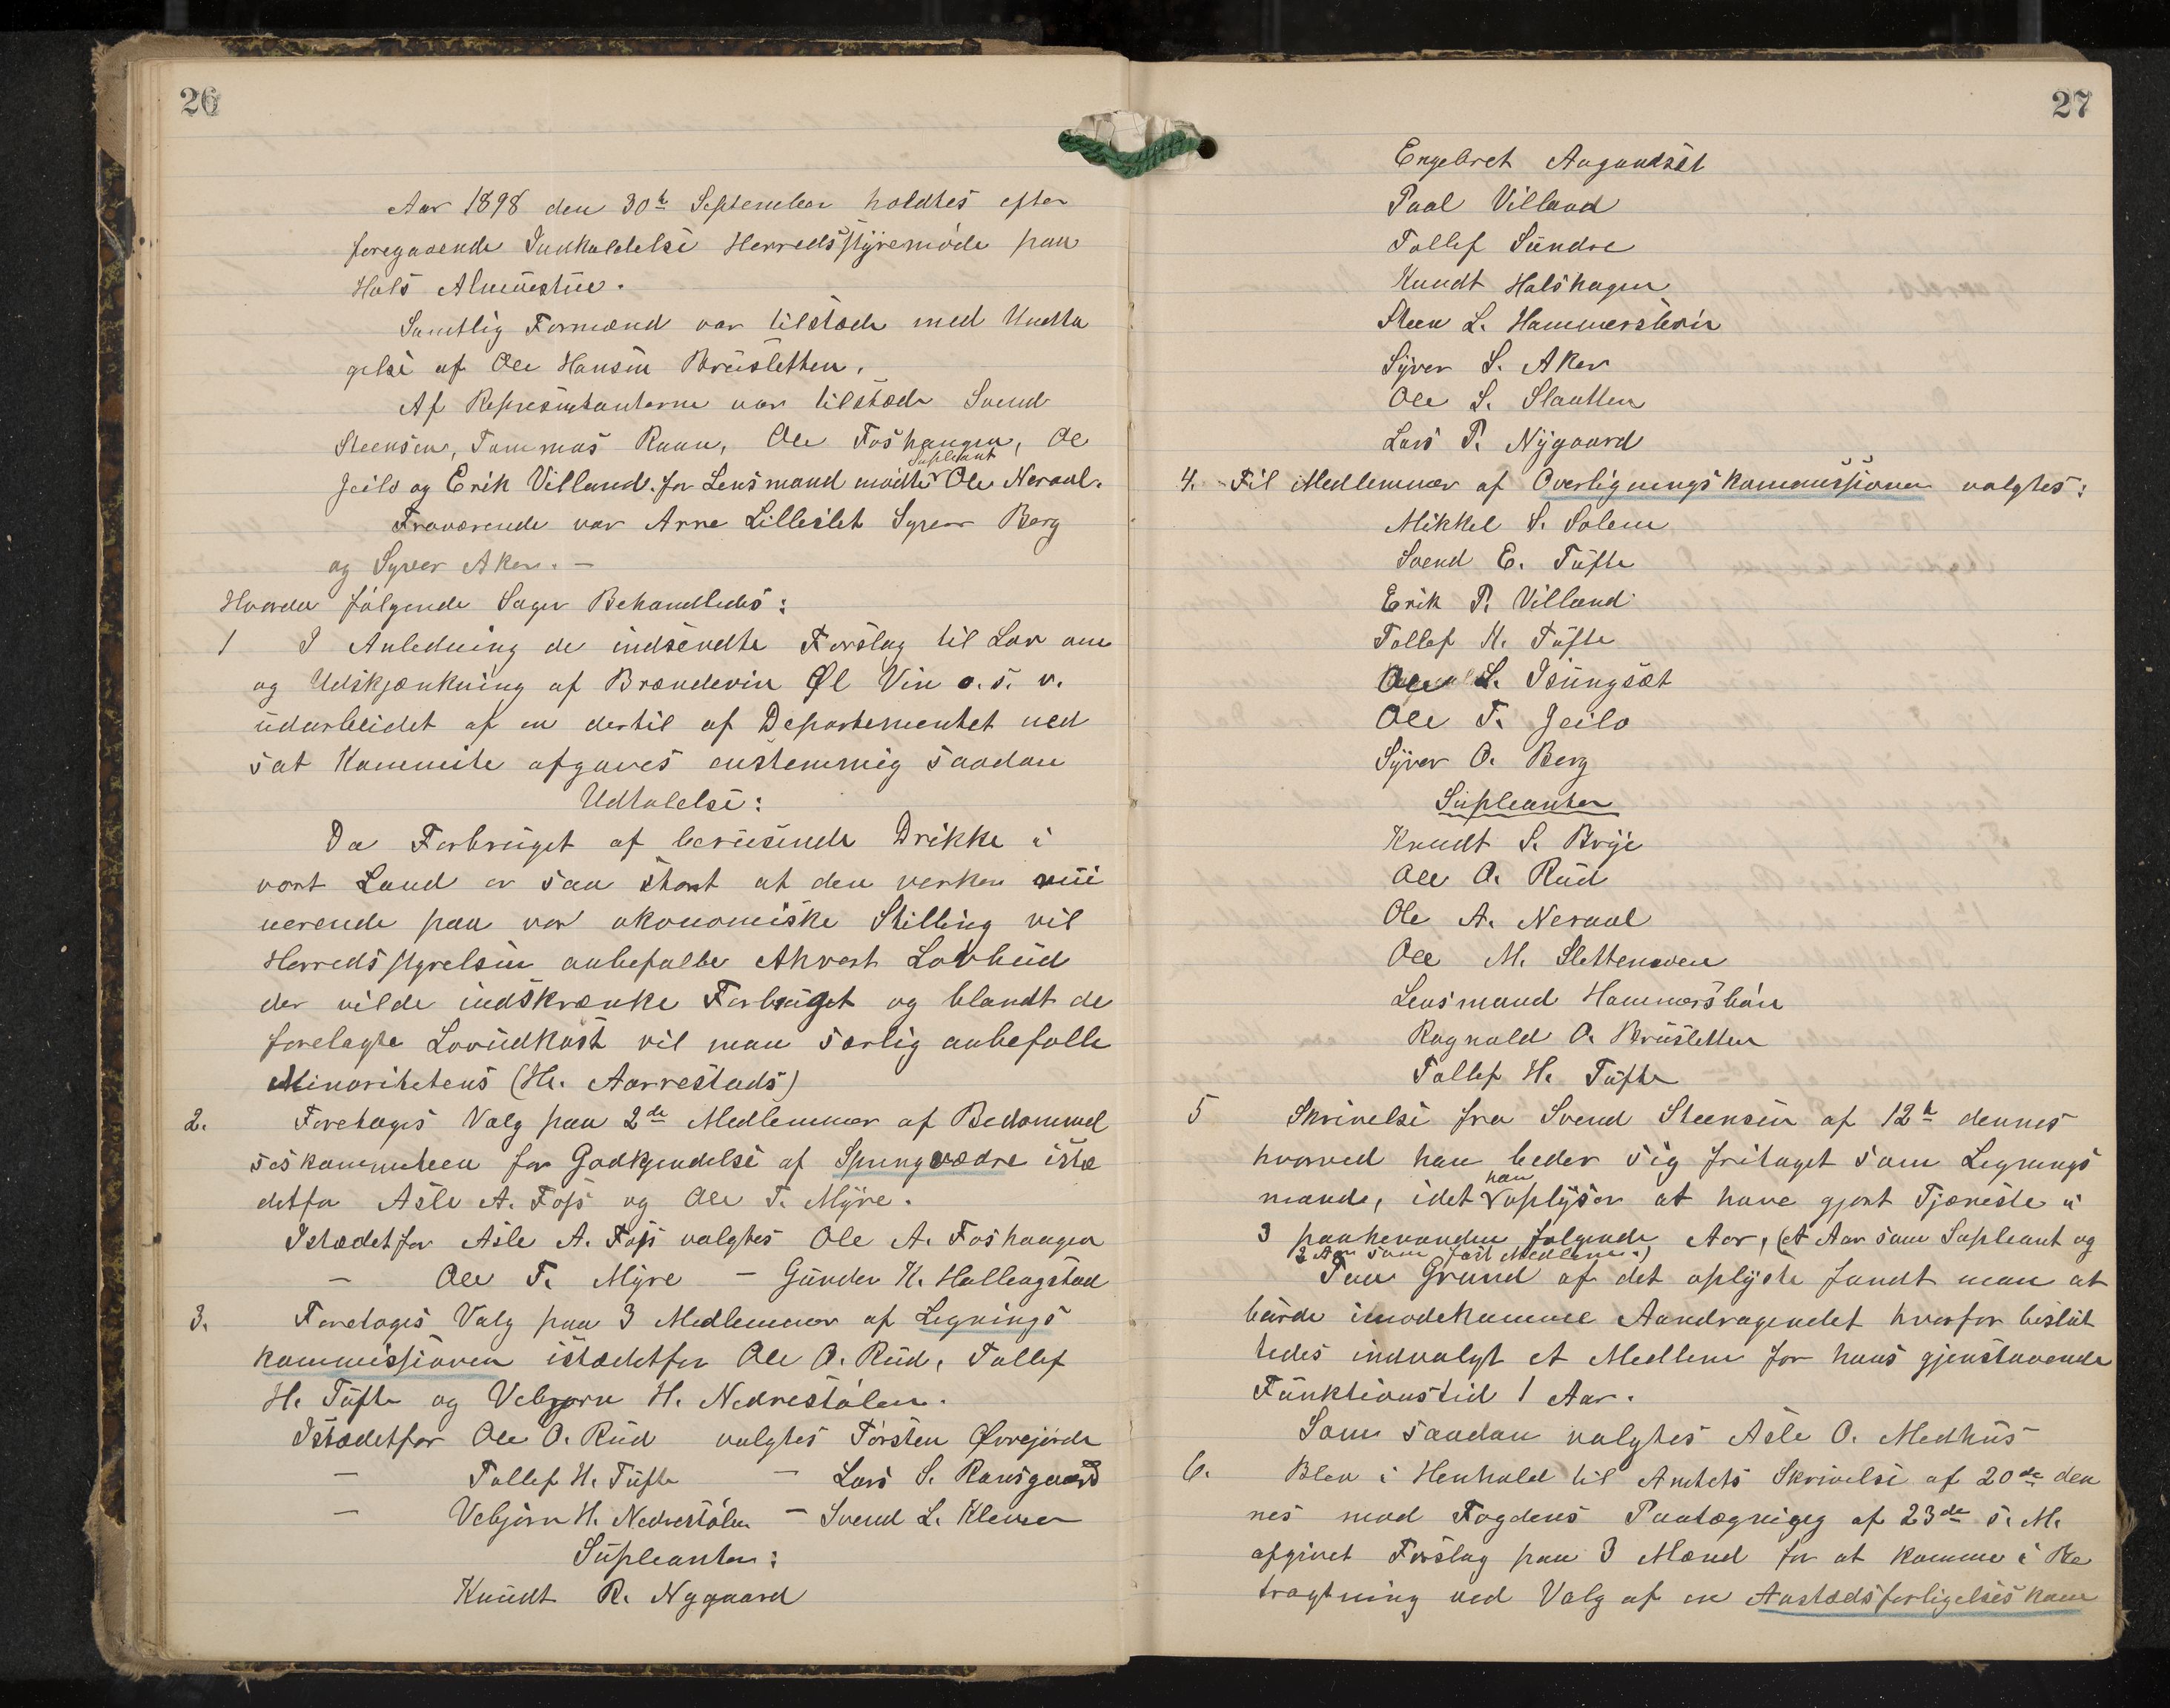 26
Aar 1898 den 30te September holdtes efter
foregaaende Innkaldelse Herredsstyremøde paa
Hols Almuestue.
Samtlig Formænd var tilstæde med Undta
gelse af Ole Hansen Bruusletten.
Af Represintanterne var tilstæde Svend
Steensen, Tommas Raan, Ole Foshaugen, Ol
Supleant
Geilo og Erik Villand. for Lensmand mødte Ole Neraal.
Fraværende var Arne Lilleslet Syver Berg
og Syver Aker. —
Hvorda følgende Sager Behandledes:
1 I Anledning de indsendte Forslag til Lov om
og Udskjænkning af Brændevin Øl Vin o. s. v.
udarbeidet af en dertil af Departementet ned
sat Kommite afgaves enstemmig saadan
Udtalelse:
Da Forbruget af berusende Drikke i
vort Land er saa stort at den verker rui
nerende paa vor økonomiske Stilling vil
Herredsstyrelsen anbefalle ethvert Lovbud
der vilde indskrænke Forbruget og blandt de
forelagte Lovudkast vil man særlig anbefalle
Minoritetens (Hr. Aarrestads)
2. Foretages Valg paa 2de Medlemmer af Bedømmel
seskommiteen for Godkjendelse af Springvædre istæ
detfor Asle A. Foss og Ole T. Myre.
Istædetfor Asle A. Foss valgtes Ole A. Foshaugen
— Ole T. Myre — Gunder K. Hallengstad
3. Foretages Valg paa 3 Medlemmer af Legnings
kommissionen istædetfor Ole O. Rud, Tollef
H. Tufte og Vebjørn H. Nedrestølen.
Istædetfor Ole O. Rud valgtes Torsten Øvrejorde
— Tollef H. Tufte — Lars S. Ransgaard
— Vebjørn H. Nedrestølen — Svend L. Klemer
Supleanter:
Knudt R. Nygaard
27
Engebret Aagundset
Paal Villand
Tollef Sundre
Knudt Halshagen
Steen L. Hammersbøin
Syver S. Aker
Ole S. Slaatten
Lars P. Nygaard
4. Til Medlemmer af Overligningskommissionen valgtes:
Mikkel S. Solem
Svend E. Tufte
Erik P. Villand
Tollef K. Tufte
Ole L. Isungset
Ole T. Geilo
Syver O. Berg
Supleanter
Knudt S. Brye
Ole O. Rud
Ole A. Neraal
Ole M. Slettemoen
Lensmand Hammersbøin
Ragnald O. Bruusletten
Tollef H. Tufte
5 Skrivelse fra Svend Steensen af 12te dennes
hvorved han beder sig fritaget som Legnings
han
mand, idet oplyser at have gjort Tjæneste i
3 paahverandre følgende Aar, (et Aar som Supleant og
2 Aar som fast Medlem.)
Paa Grund af det oplyste fandt man at
burde imødekomme Aandragendet hvorfor beslut
tedes indvalgt et Medlem for hans gjenstaaende
Funktionstid 1 Aar.
Som saadan valgtes Asle O. Medhus
6. Blev i Henhold til Amtets Skrivelse af 20de den
nes med Fogdens Paategnigeg af 23de s. M.
afgivet Forslag paa 3 Mænd for at komme i Be
tragtning ved Valg af en Aastædsforligelseskom